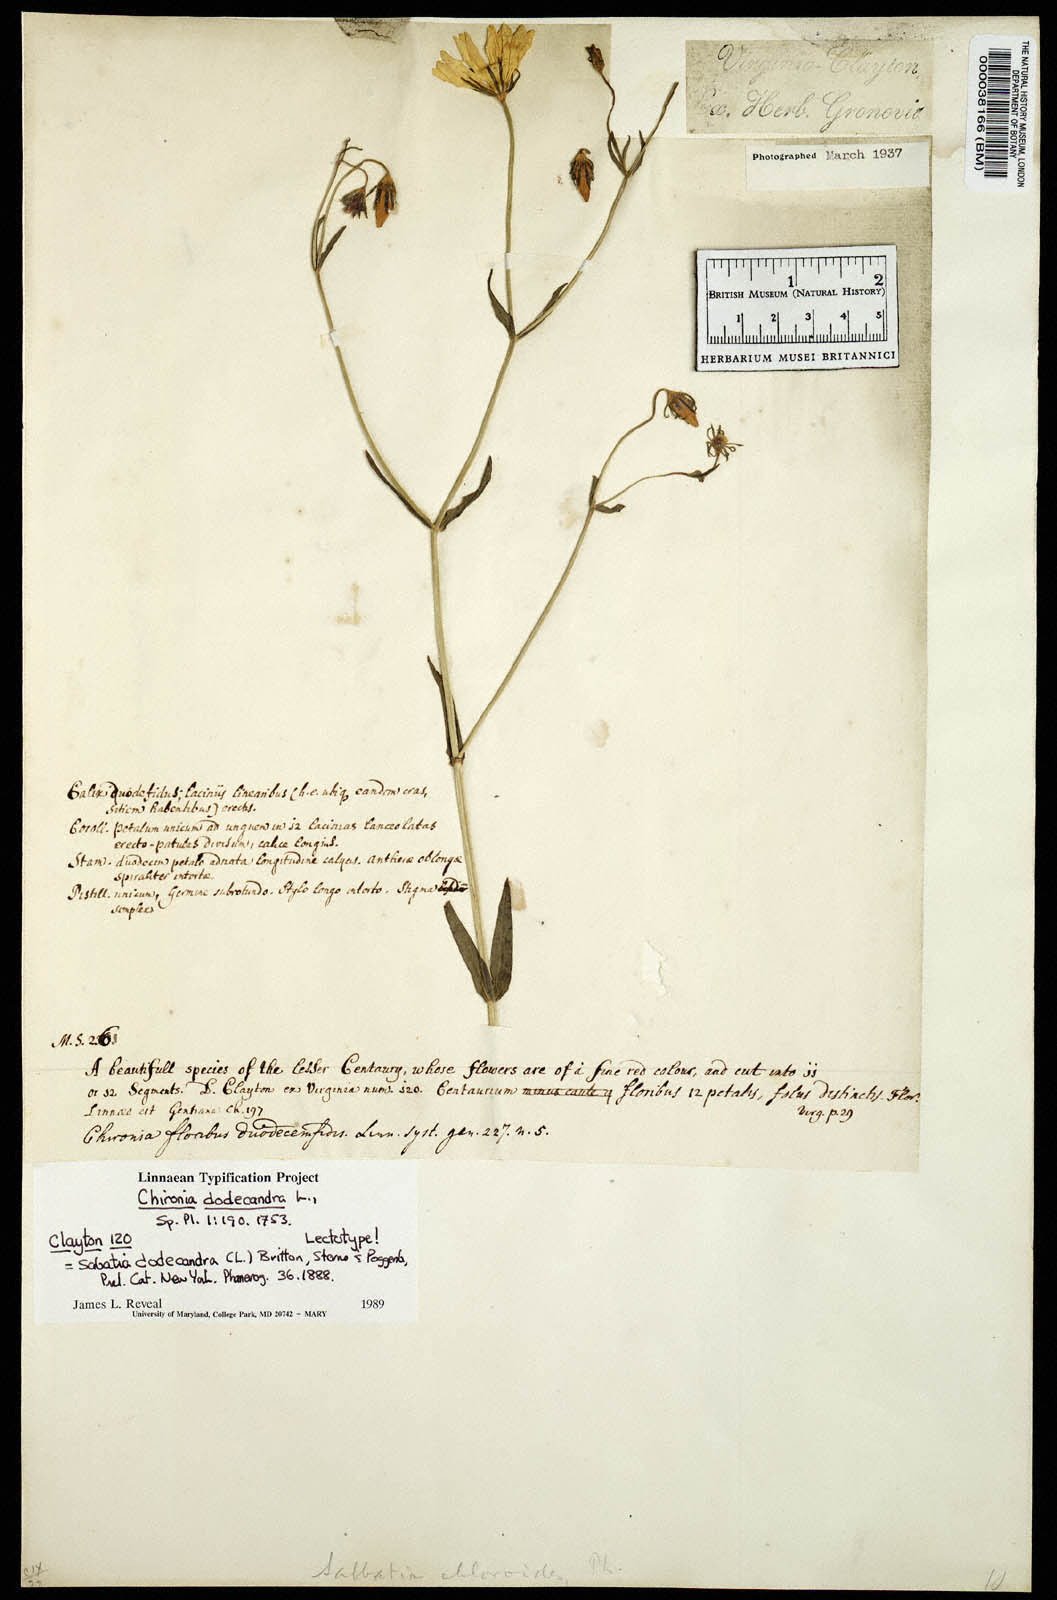 Virginia Clayton,
Ex. Herb. Gronovii
Photographed March 1937
THE NATURAL HISTORY MUSEUM, LONDON
DEPARTMENT OF BOTANY
000038166 (BM)
1 2
BRITISH MUSEUM (NATURAL HISTORY)
1 2 3 4 5
HERBARIUM MUSEI BRITANNICI
Calix duodefidus; laciniis linearibus (h.e. ubiq eandem cras,
sitiem habentibus) erectis.
Coroll. petalum unicum ad unguem in 12 lacinias lanceolatas
erecto-patulas divisum, calice longius.
Stam. duodecim petalo adnata longitudine calycis. antherae oblongae
spiraliter intortae.
Pistill. unicum, Germine subrotundo. Stylo longo intorto. Stigma
simplex
M. S. 26
A beautifull species of the lesser Centaury, whose flowers are of a fine red colour, and cut into 11
or 12 Segments. D. Clayton ex Virginia num. 120. Centaurium minus caule floribus 12 petalis, foliis distinctis. Flor.
Virg. p. 29
Linnaeo est Gentiana Ch. 197
Chironia floribus duodecemfidis. Linn. syst. gen. 227. n. 5.
Linnaean Typification Project
Chironia dodecandra L.,
Sp. Pl. 1:190. 1753.
Clayton 120 Lectotype!
= Sabatia dodecandra (L.) Britton, Sterns & Poggenb.,
Prel. Cat. New York. Phanerog. 36. 1888.
James L. Reveal 1989
University of Maryland, College Park, MD 20742 – MARY
Sabbatia chloroides, Ph.